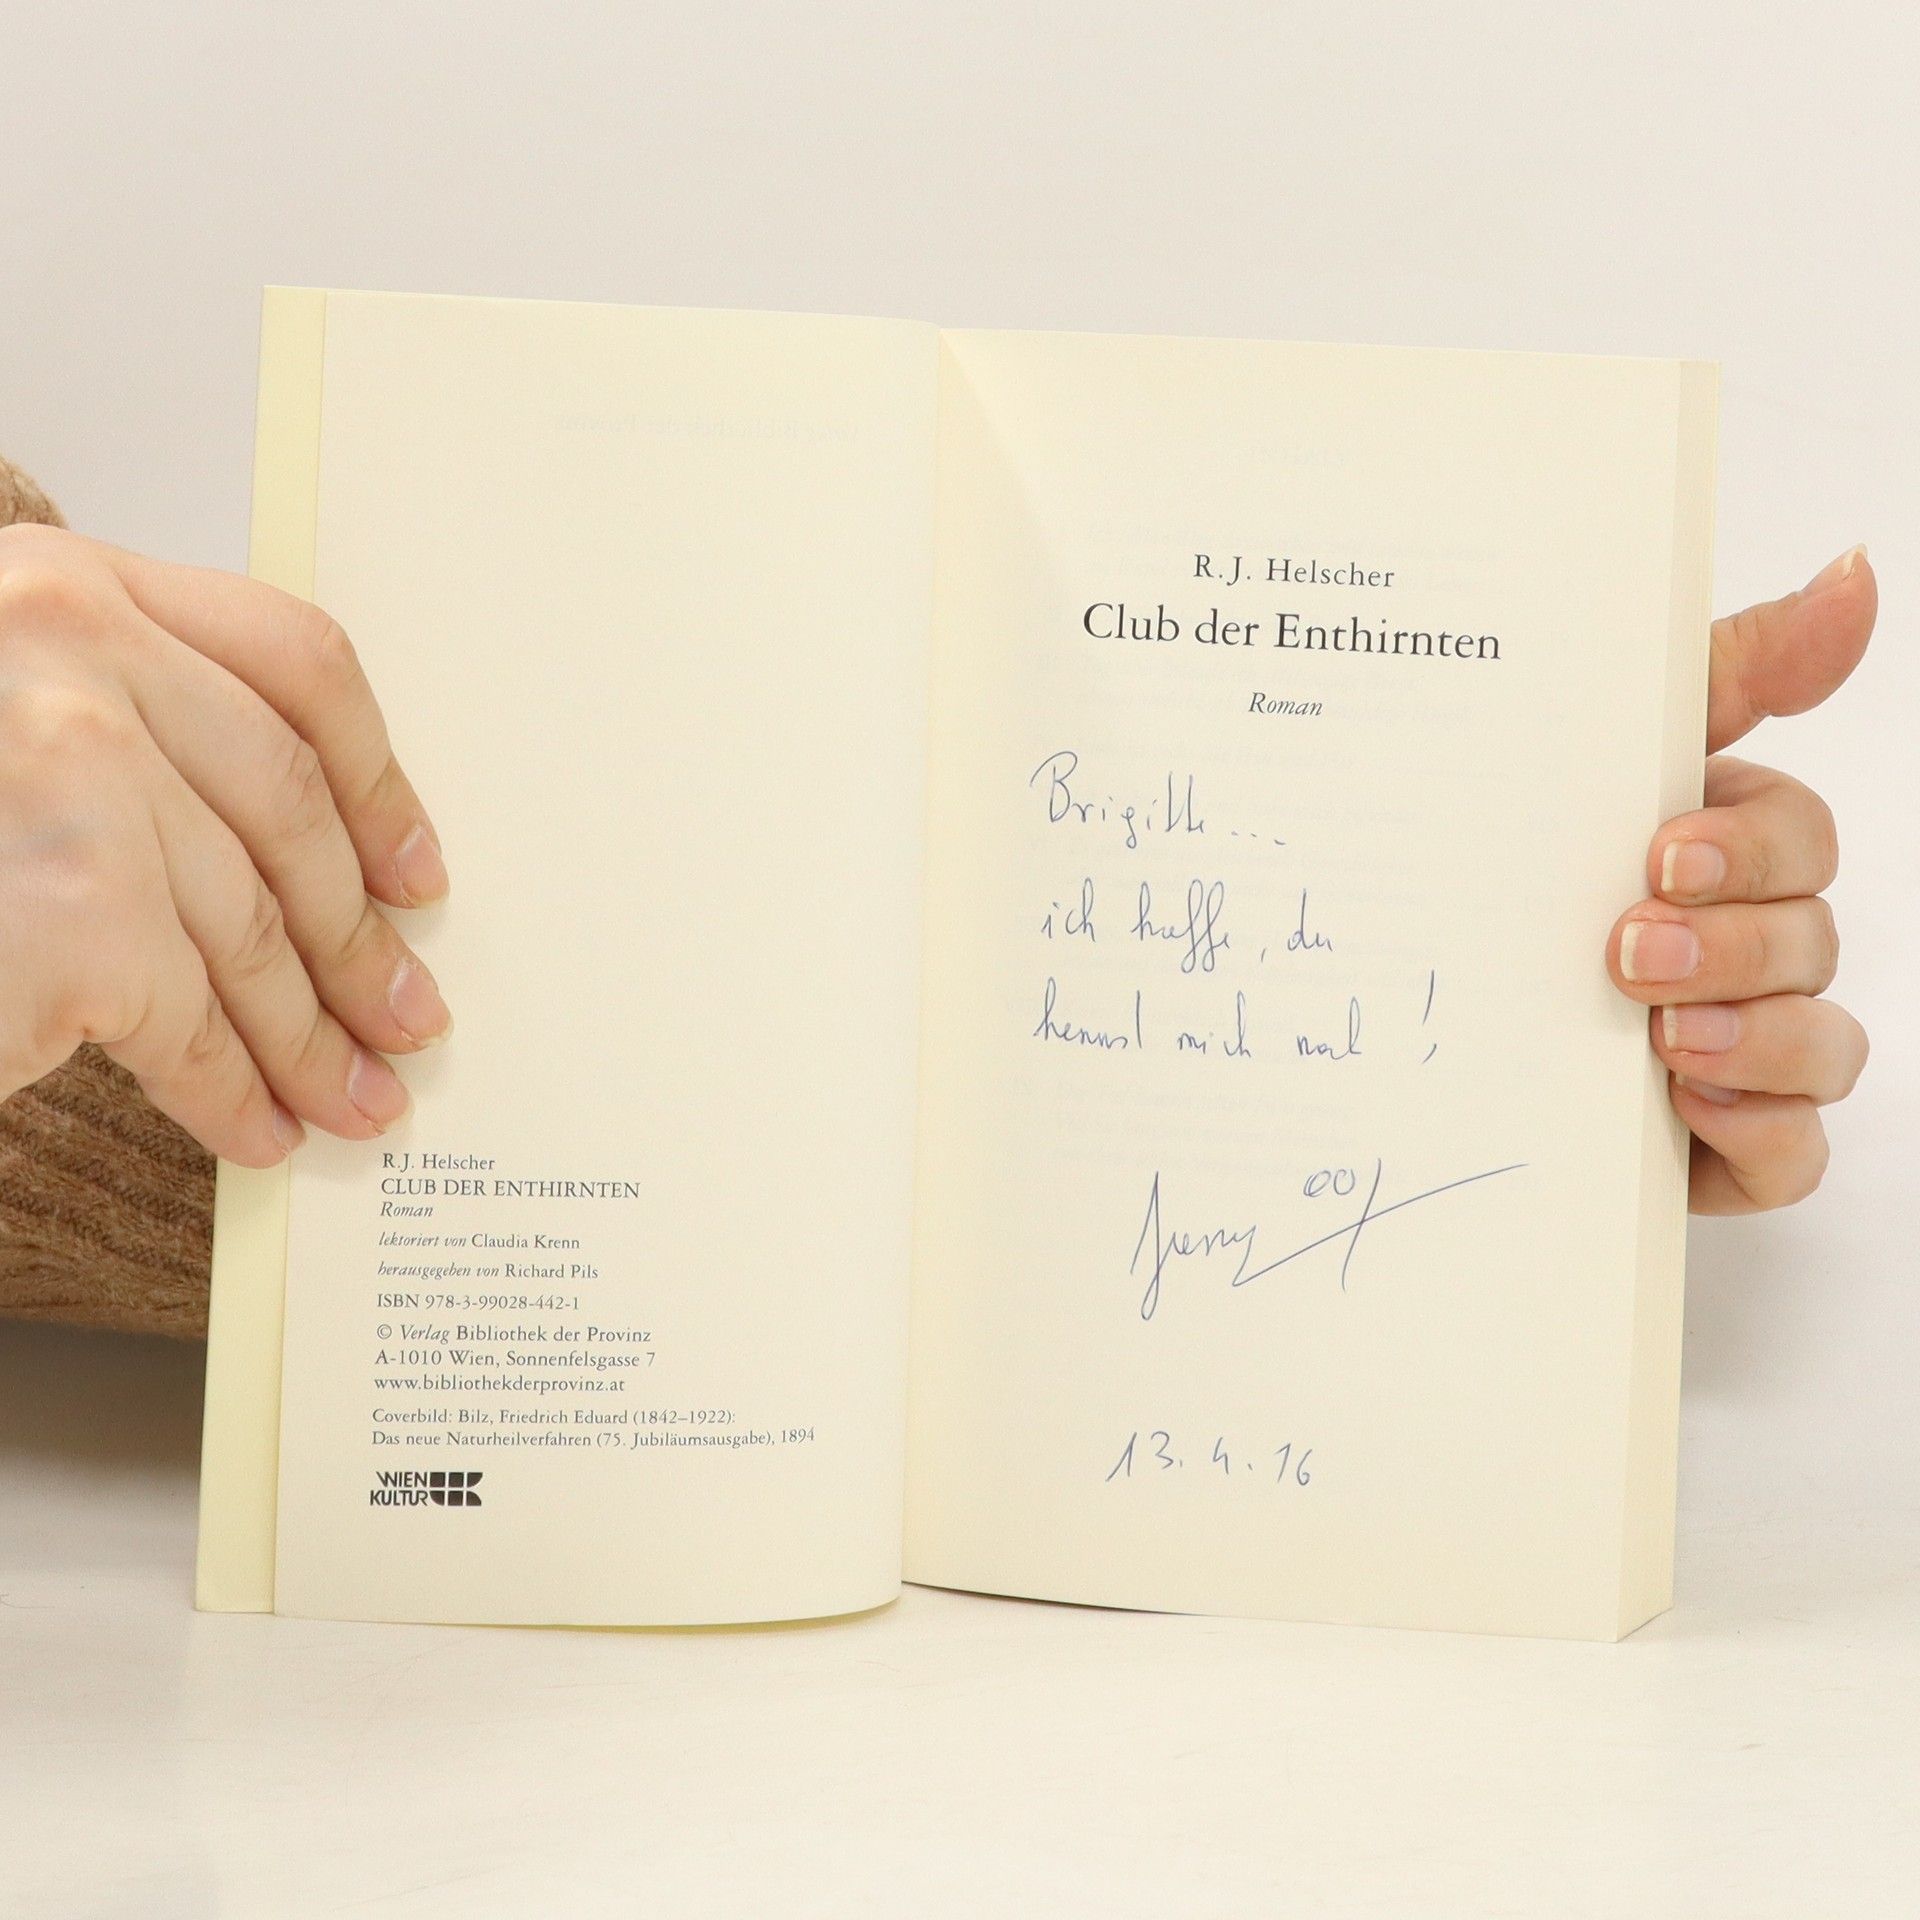 R.J. Helscher
CLUB DER ENTHIRNTEN
Roman
lektoriert von Claudia Krenn
herausgegeben von Richard Pils
ISBN 978-3-99028-442-1
© Verlag Bibliothek der Provinz
A-1010 Wien, Sonnenfelsgasse 7
www.bibliothekderprovinz.at
Coverbild: Bilz, Friedrich Eduard (1842–1922):
Das neue Naturheilverfahren (75. Jubiläumsausgabe), 1894
WIEN
KULTUR
R.J. Helscher
Club der Enthirnten
Roman
Brigitte...
ich hoffe, du
kennst mich noch!
13. 4. 16